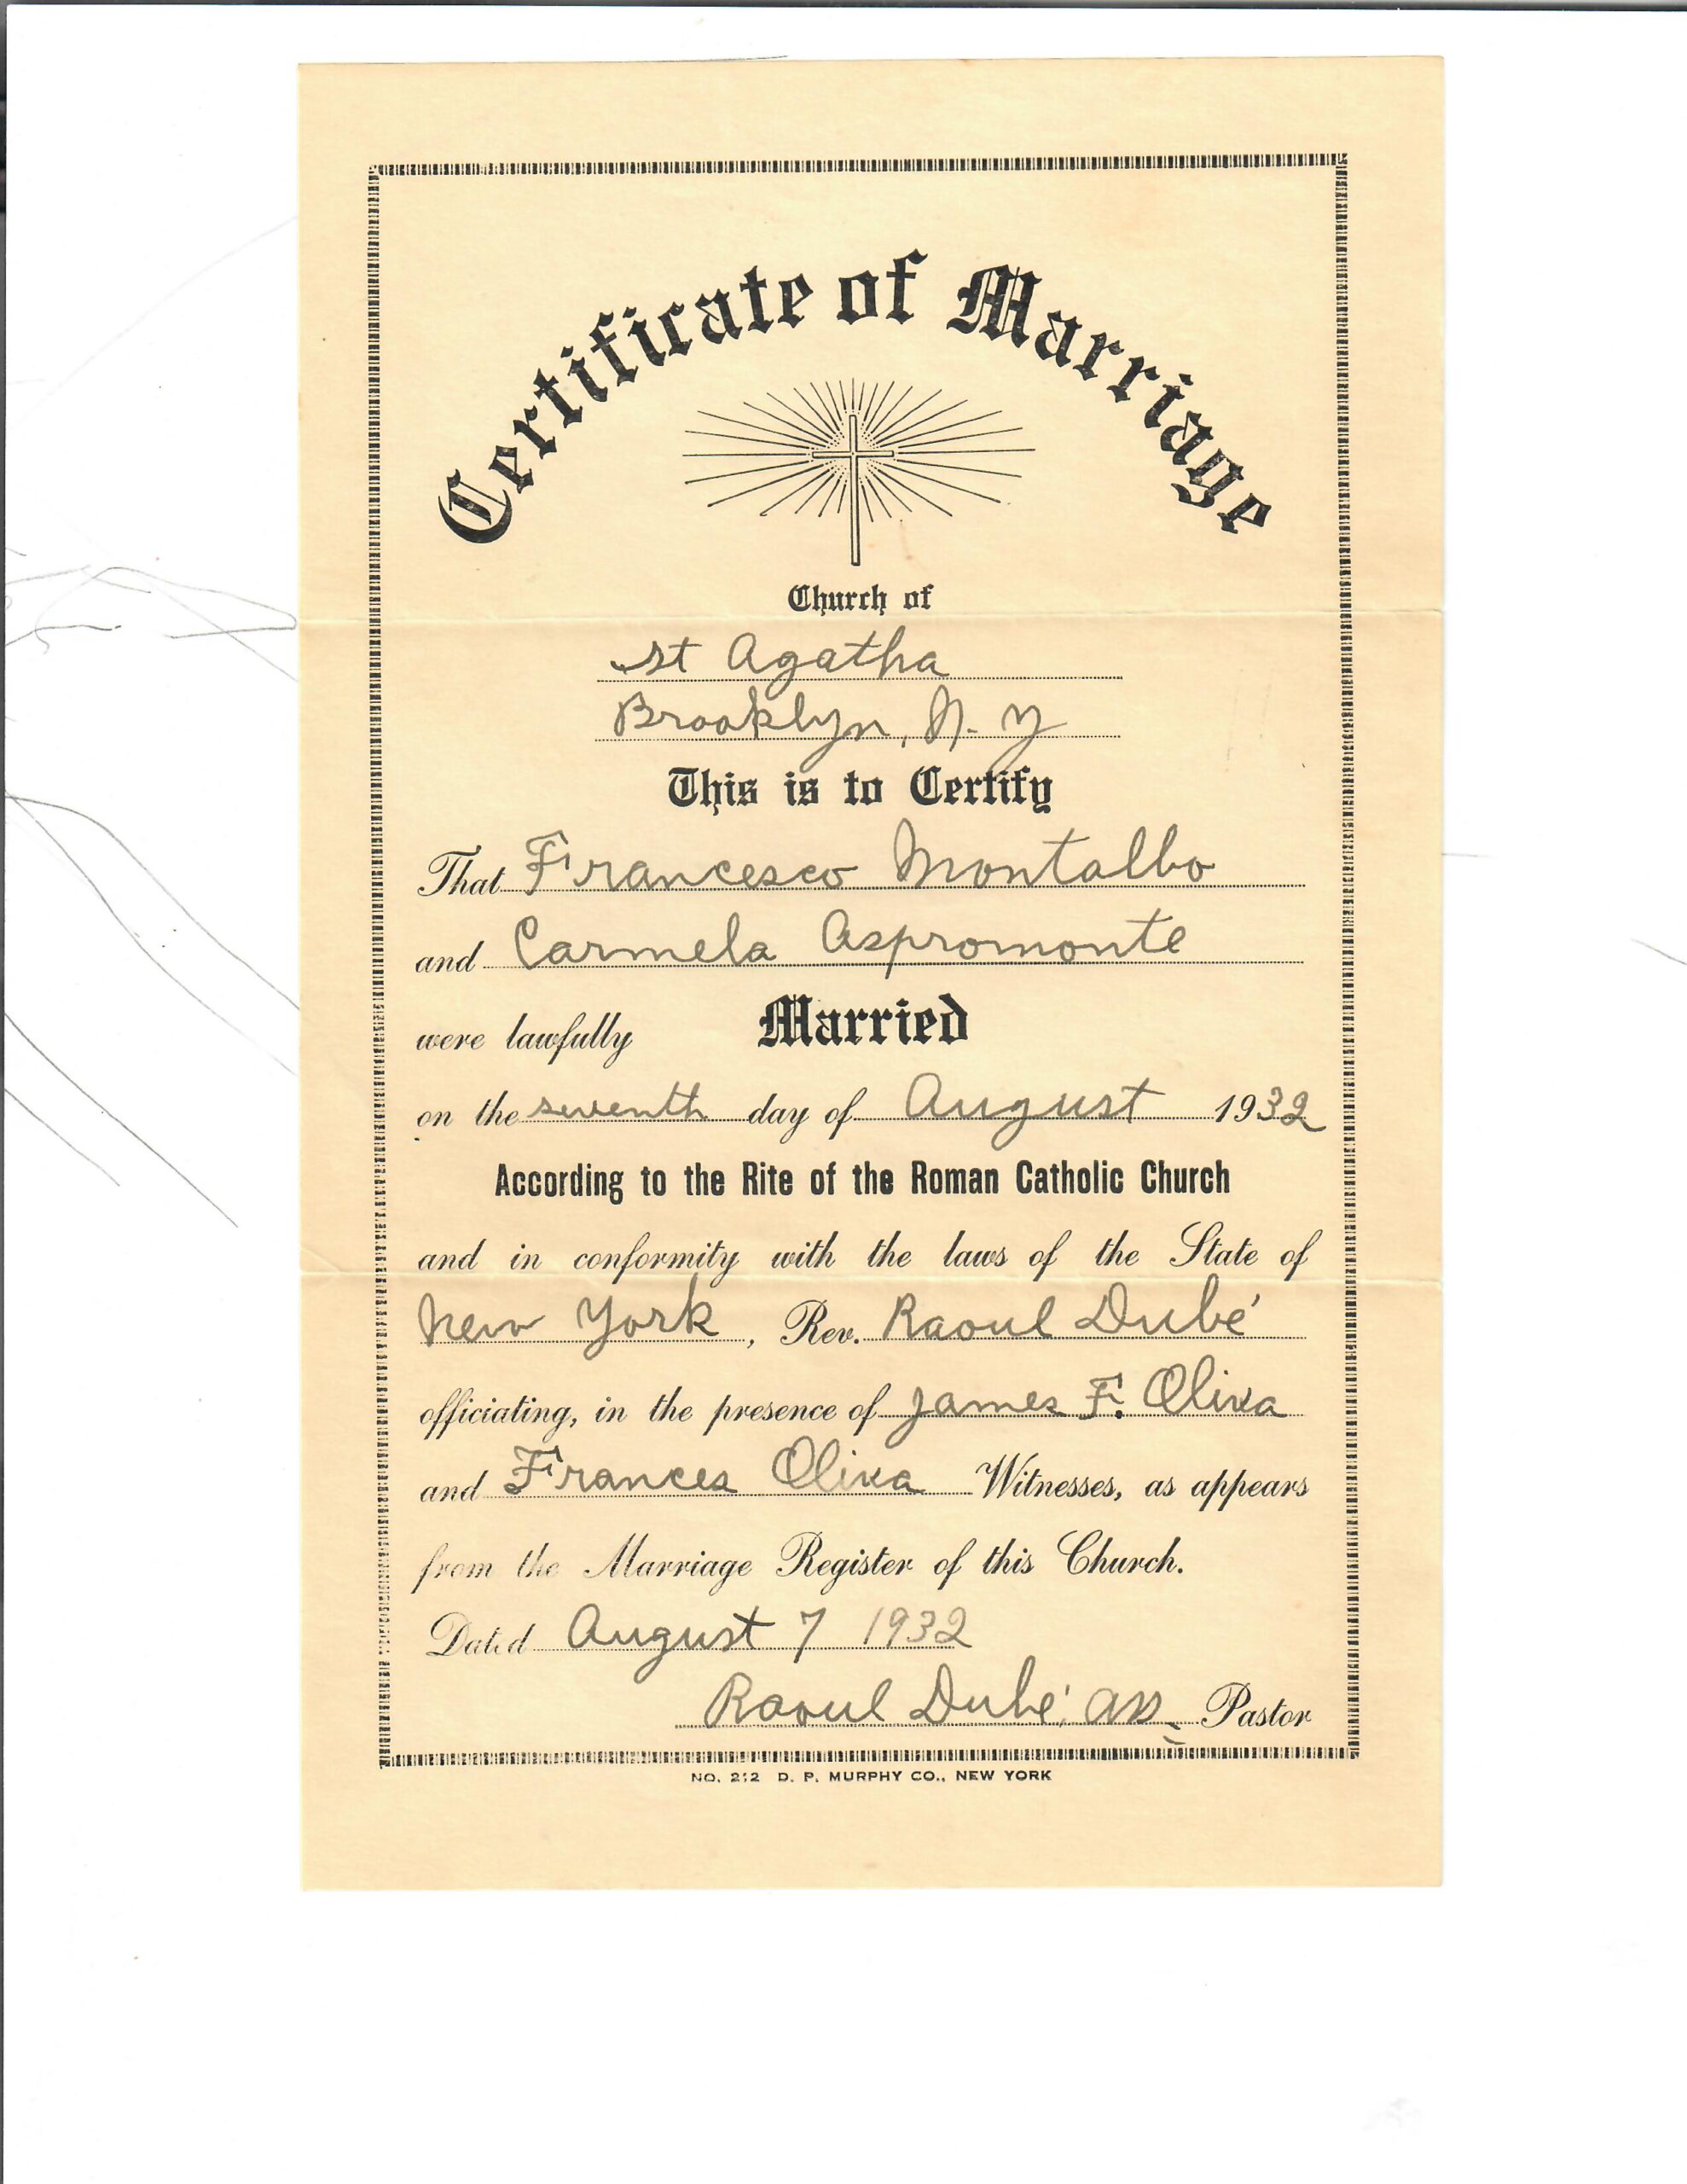 Certificate of Marriage
Church of
St Agatha
Brooklyn, N. Y
This is to Certify
That Francesco Montalbo
and Carmela Aspromonte
were lawfully Married
on the seventh day of August 1932
According to the Rite of the Roman Catholic Church
and in conformity with the laws of the State of
New York, Rev. Raoul Dubé
officiating, in the presence of James F. Oliva
and Frances Oliva Witnesses, as appears
from the Marriage Register of this Church.
Dated August 7 1932
Raoul Dubé, Pastor
NO. 212 D. P. MURPHY CO., NEW YORK